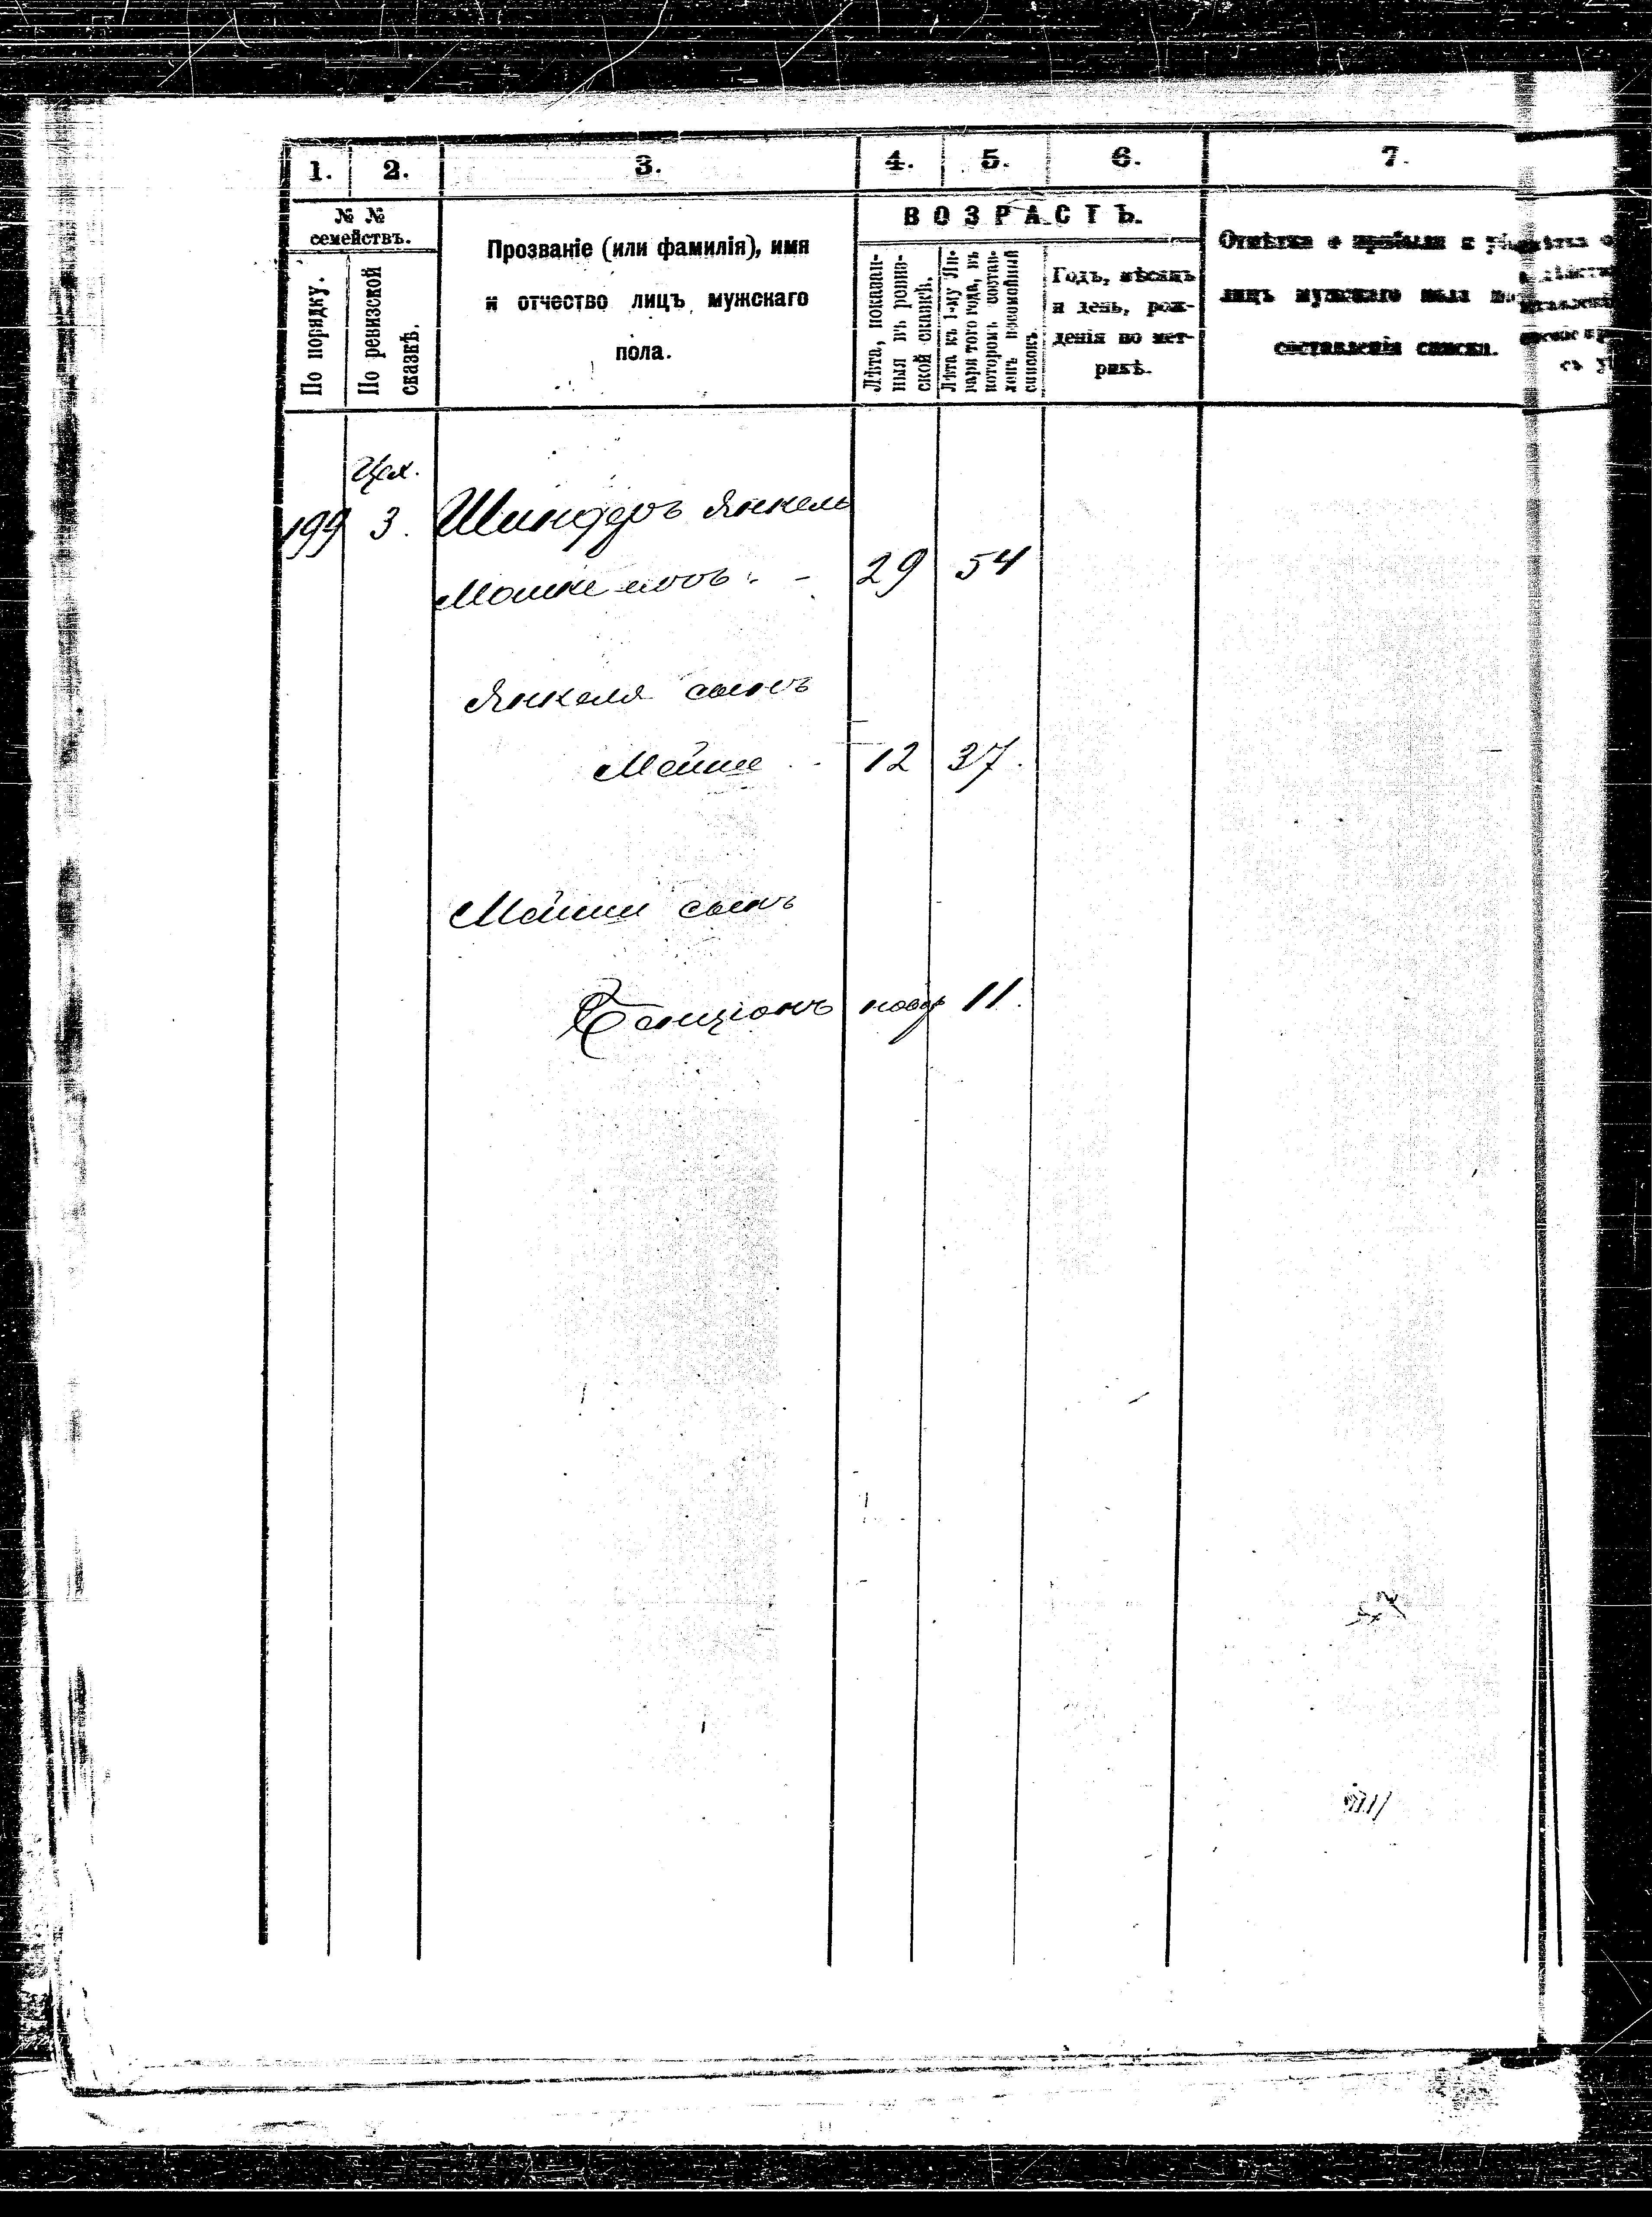 1. 2. 3. 4. 5. 6. 7.
№ №
семействъ.
По порядку.
По ревизской
сказкѣ.
Прозваніе (или фамилія), имя
и отчество лицъ мужскаго
пола.
ВОЗРАСТЪ.
Лѣта, показан-
ныя въ ревиз-
ской сказкѣ.
Лѣта къ 1-му Ян-
варя того года, въ
которомъ состав-
ленъ посемейный
списокъ.
Годъ, мѣсяцъ
и день, рож-
денія по мет-
рикѣ.
Отмѣтка о прибыли и
лицъ мужскаго пола
составленія списка.
Цех.
199 3. Янкель
29 54
Янкеля сынъ
Мойше 12 37.
Мойши сынъ
Бенціонъ новор 11.